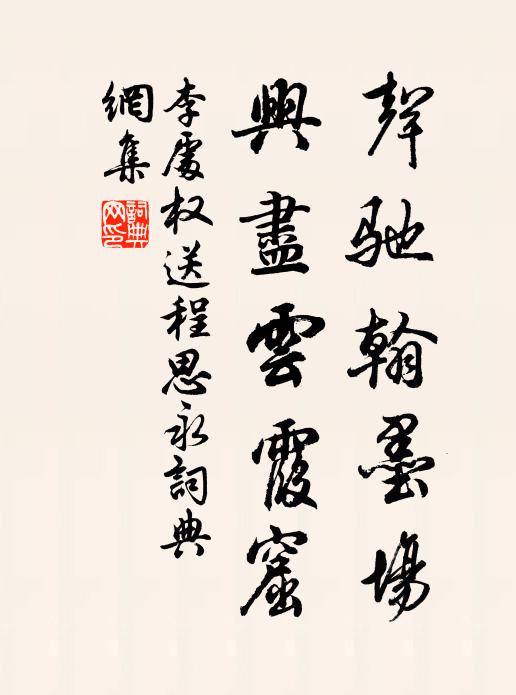 聲馳翰墨場
興盡雲霞窟
李處权送程思永詞典
網集
詞典網印